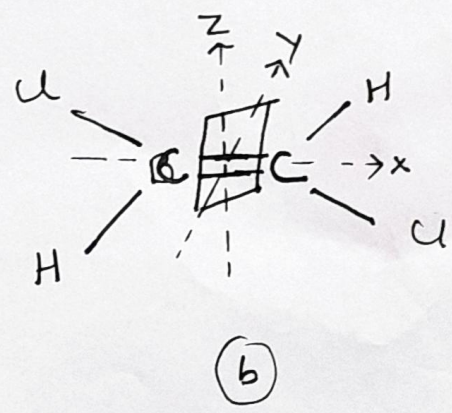 Z
Y
Cl H
C C x
H Cl
b